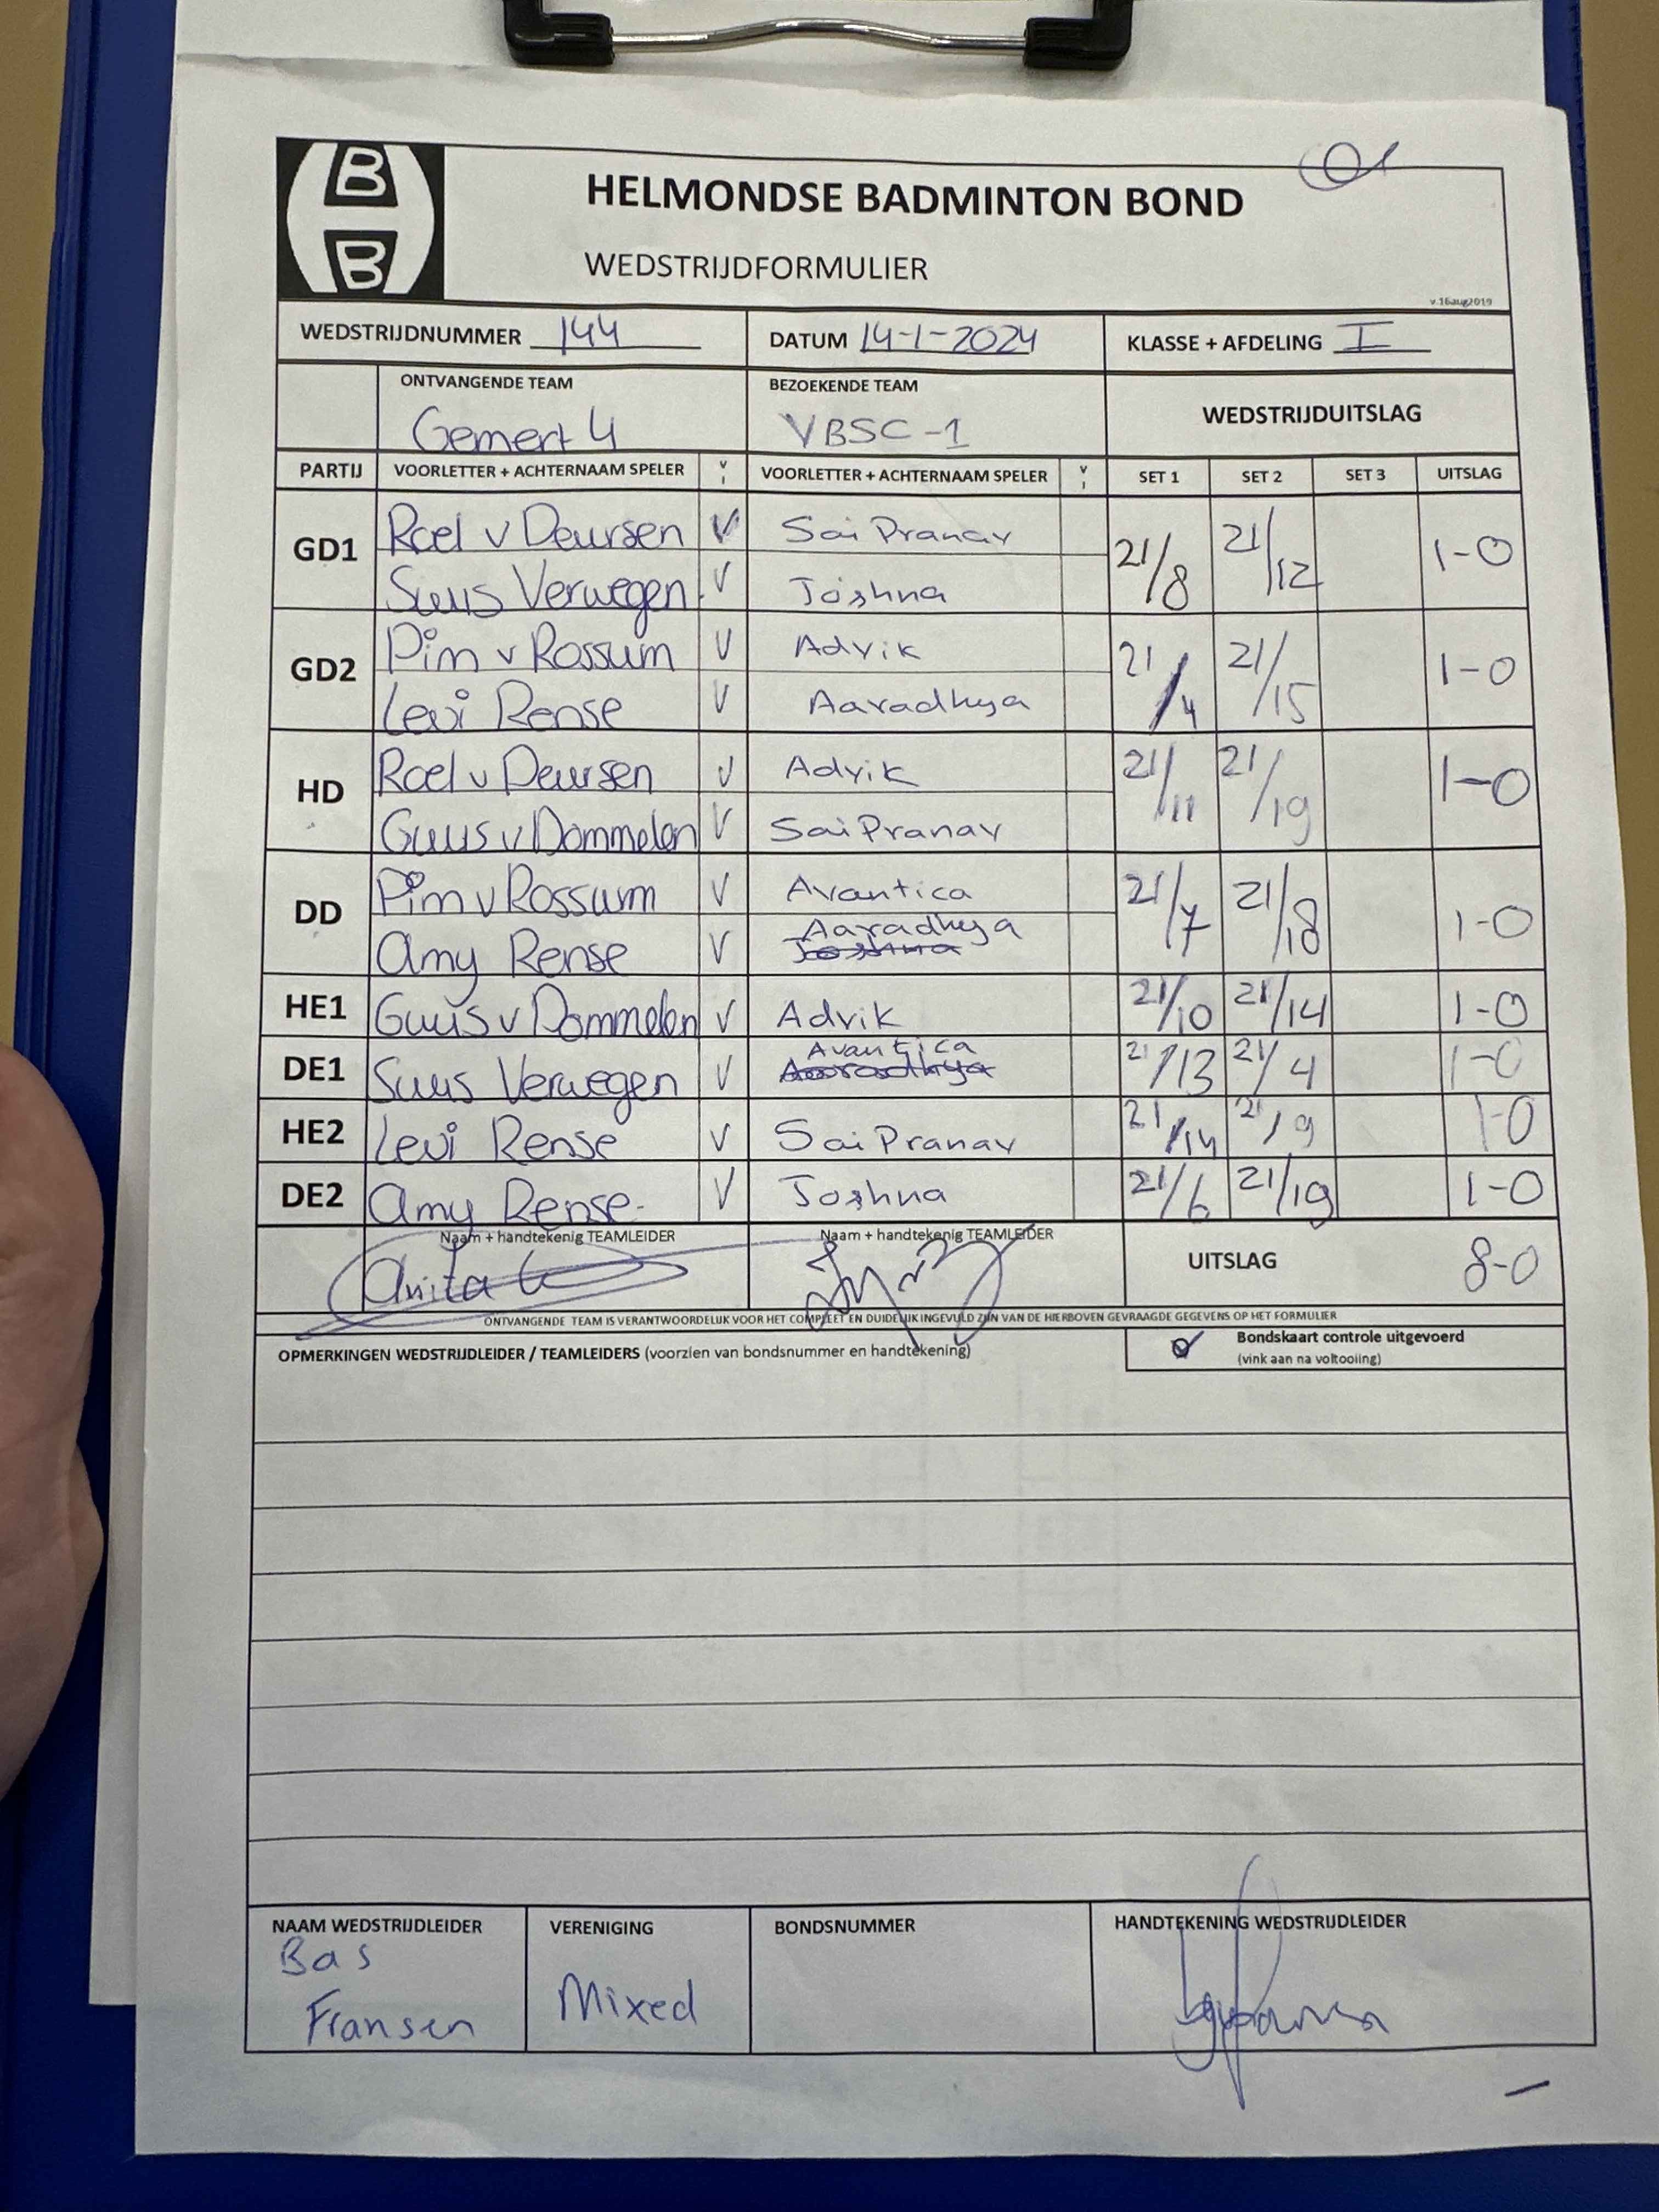 B
B
HELMONDSE BADMINTON BOND
WEDSTRIJDFORMULIER
v.16aug2019
WEDSTRIJDNUMMER 144 DATUM 14-1-2024 KLASSE + AFDELING I
ONTVANGENDE TEAM BEZOEKENDE TEAM WEDSTRIJDUITSLAG
Gemert 4 VBSC-1
PARTIJ VOORLETTER + ACHTERNAAM SPELER V VOORLETTER + ACHTERNAAM SPELER V SET 1 SET 2 SET 3 UITSLAG
GD1 Roel v Deursen V Sai Pranav 21/8 21/12 1-0
Suus Verwegen V Joshna
GD2 Pim v Rossum V Advik 21/4 21/15 1-0
Levi Rense V Aaradhya
HD Roel v Deursen V Advik 21/11 21/19 1-0
Guus v Dommelen V Sai Pranav
DD Pim v Rossum V Avantica 21/7 21/18 1-0
Amy Rense V Aaradhya
Joshna
HE1 Guus v Dommelen V Advik 21/10 21/14 1-0
DE1 Suus Verwegen V Avantica 21/13 21/4 1-0
Aaradhya
HE2 Levi Rense V Sai Pranav 21/14 21/9 1-0
DE2 Amy Rense V Joshna 21/6 21/19 1-0
Naam + handtekenig TEAMLEIDER Naam + handtekenig TEAMLEIDER UITSLAG 8-0
Anita
ONTVANGENDE TEAM IS VERANTWOORDELIJK VOOR HET COMPLEET EN DUIDELIJK INGEVULD ZIJN VAN DE HIERBOVEN GEVRAAGDE GEGEVENS OP HET FORMULIER
OPMERKINGEN WEDSTRIJDLEIDER / TEAMLEIDERS (voorzien van bondsnummer en handtekening) Bondskaart controle uitgevoerd
(vink aan na voltooiing)
NAAM WEDSTRIJDLEIDER VERENIGING BONDSNUMMER HANDTEKENING WEDSTRIJDLEIDER
Bas
Fransen Mixed